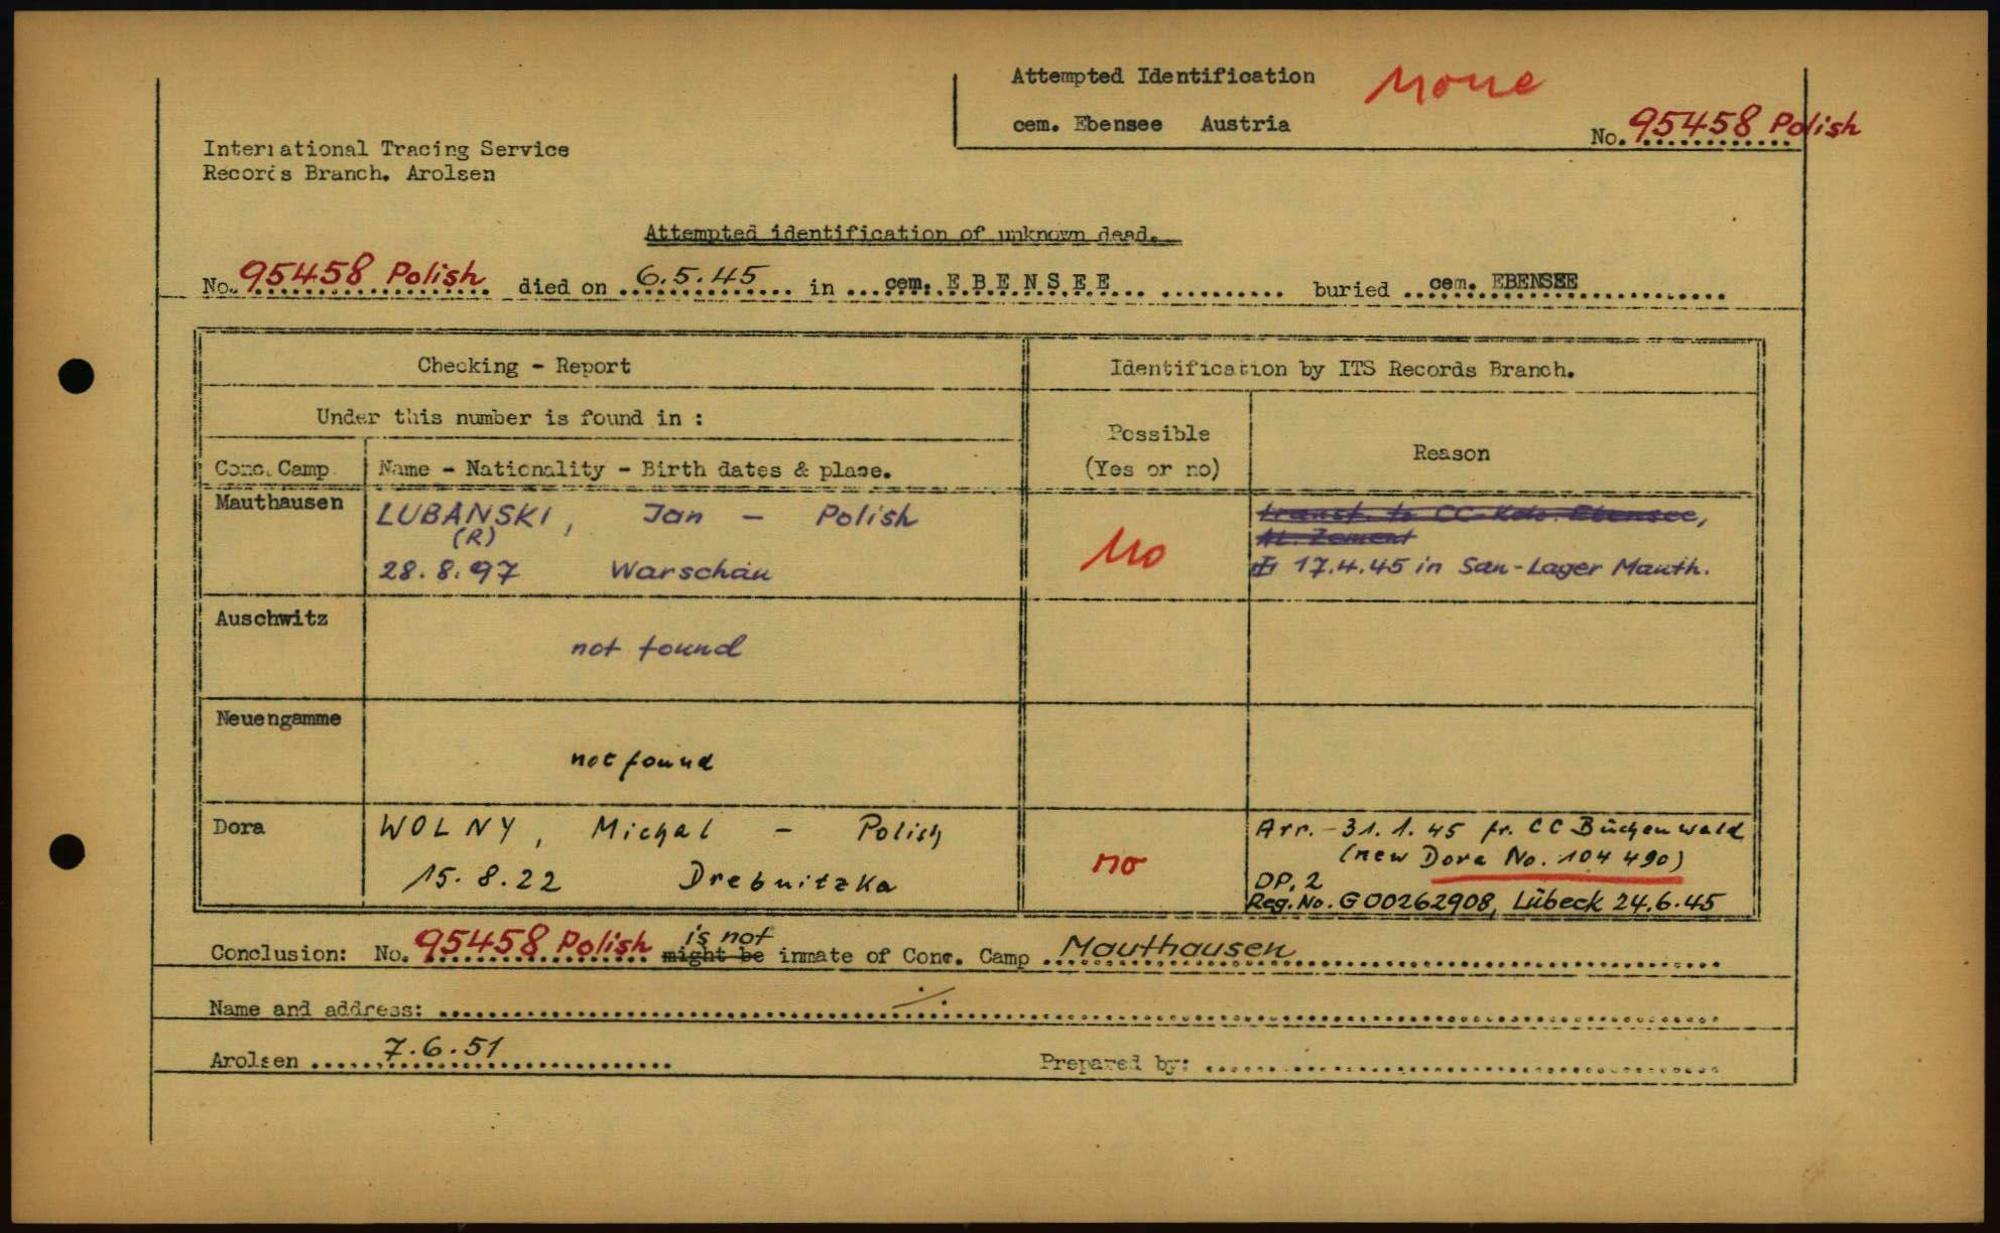 Attempted Identification None
cem. Ebensee Austria
No. 95458 Polish
International Tracing Service
Records Branch. Arolsen
Attempted identification of unknown dead.
No. 95458 Polish died on 6.5.45 in cem. EBENSEE buried cem. EBENSEE
Checking - Report
Identification by ITS Records Branch.
Under this number is found in :
Possible
(Yes or no)
Reason
Conc. Camp
Name - Nationality - Birth dates & place.
Mauthausen
LUBANSKI, Jan - Polish
(R)
28.8.97 Warschau
No
transf. to CC-Kdo. Ebensee,
AL. Zement
17.4.45 in San-Lager Mauth.
Auschwitz
not found
Neuengamme
not found
Dora
WOLNY, Michal - Polish
15.8.22 Drebnitzka
no
Arr. - 31.1.45 fr. CC Buchenwald
(new Dora No. 104490)
DP. 2
Reg. No. G00262908, Lübeck 24.6.45
is not
Conclusion: No. 95458 Polish might be inmate of Conc. Camp Mauthausen
Name and address: ./.
Arolsen 7.6.51
Prepared by: